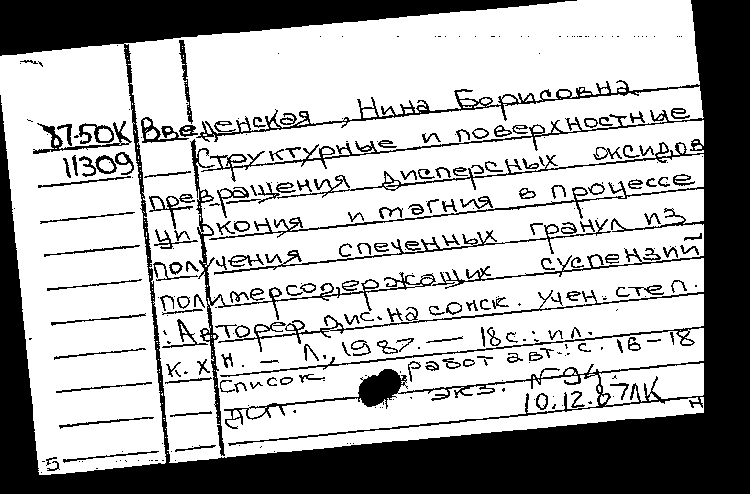 87-50К Введенская, Нина Борисовна
11309 Структурные и поверхностные
превращения дисперсных оксидов
циркония и магния в процессе
получения спеченных гранул из
полимерсодержащих суспензий
: Автореф. дис. на соиск. учен. степ.
к. х. н. – Л., 1987. – 18 с.: ил.
Список работ авт.: с. 16-18
экз. N 94.
10.12.87 ЛК
Н
5